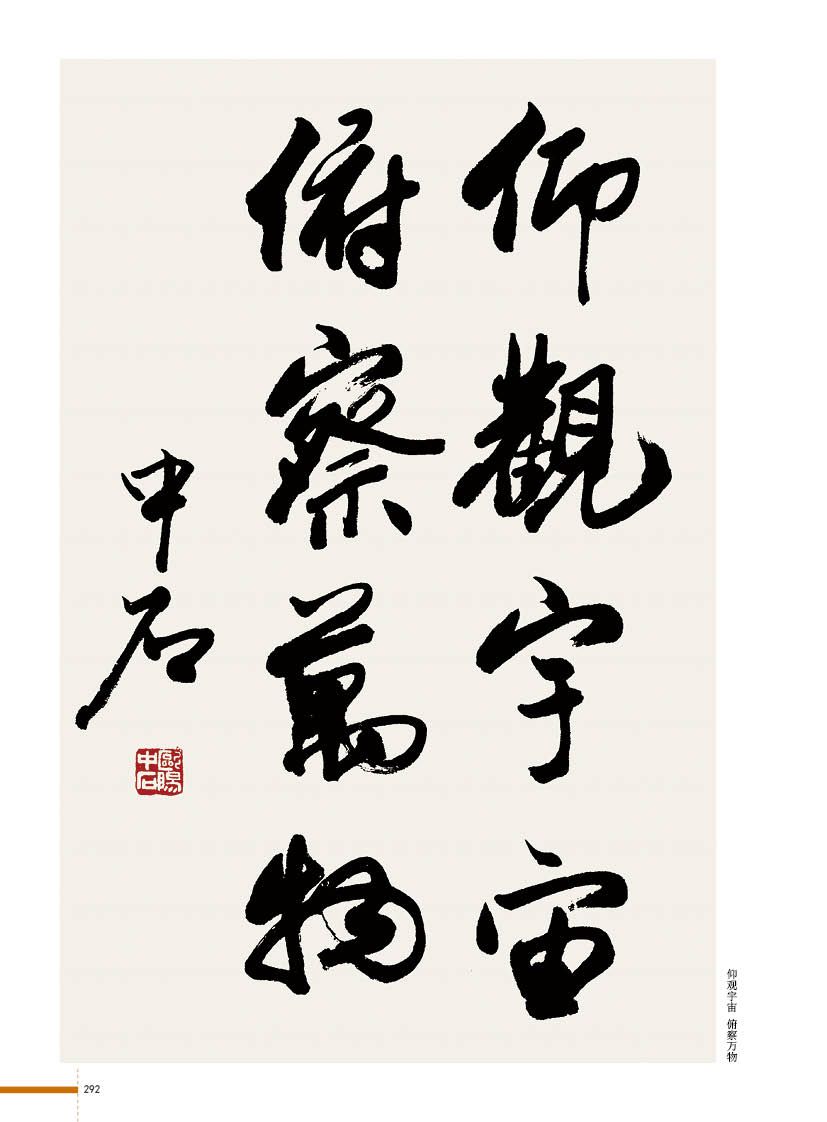 仰觀宇宙
俯察萬物
中石
歐陽中石
仰观宇宙 俯察万物
292